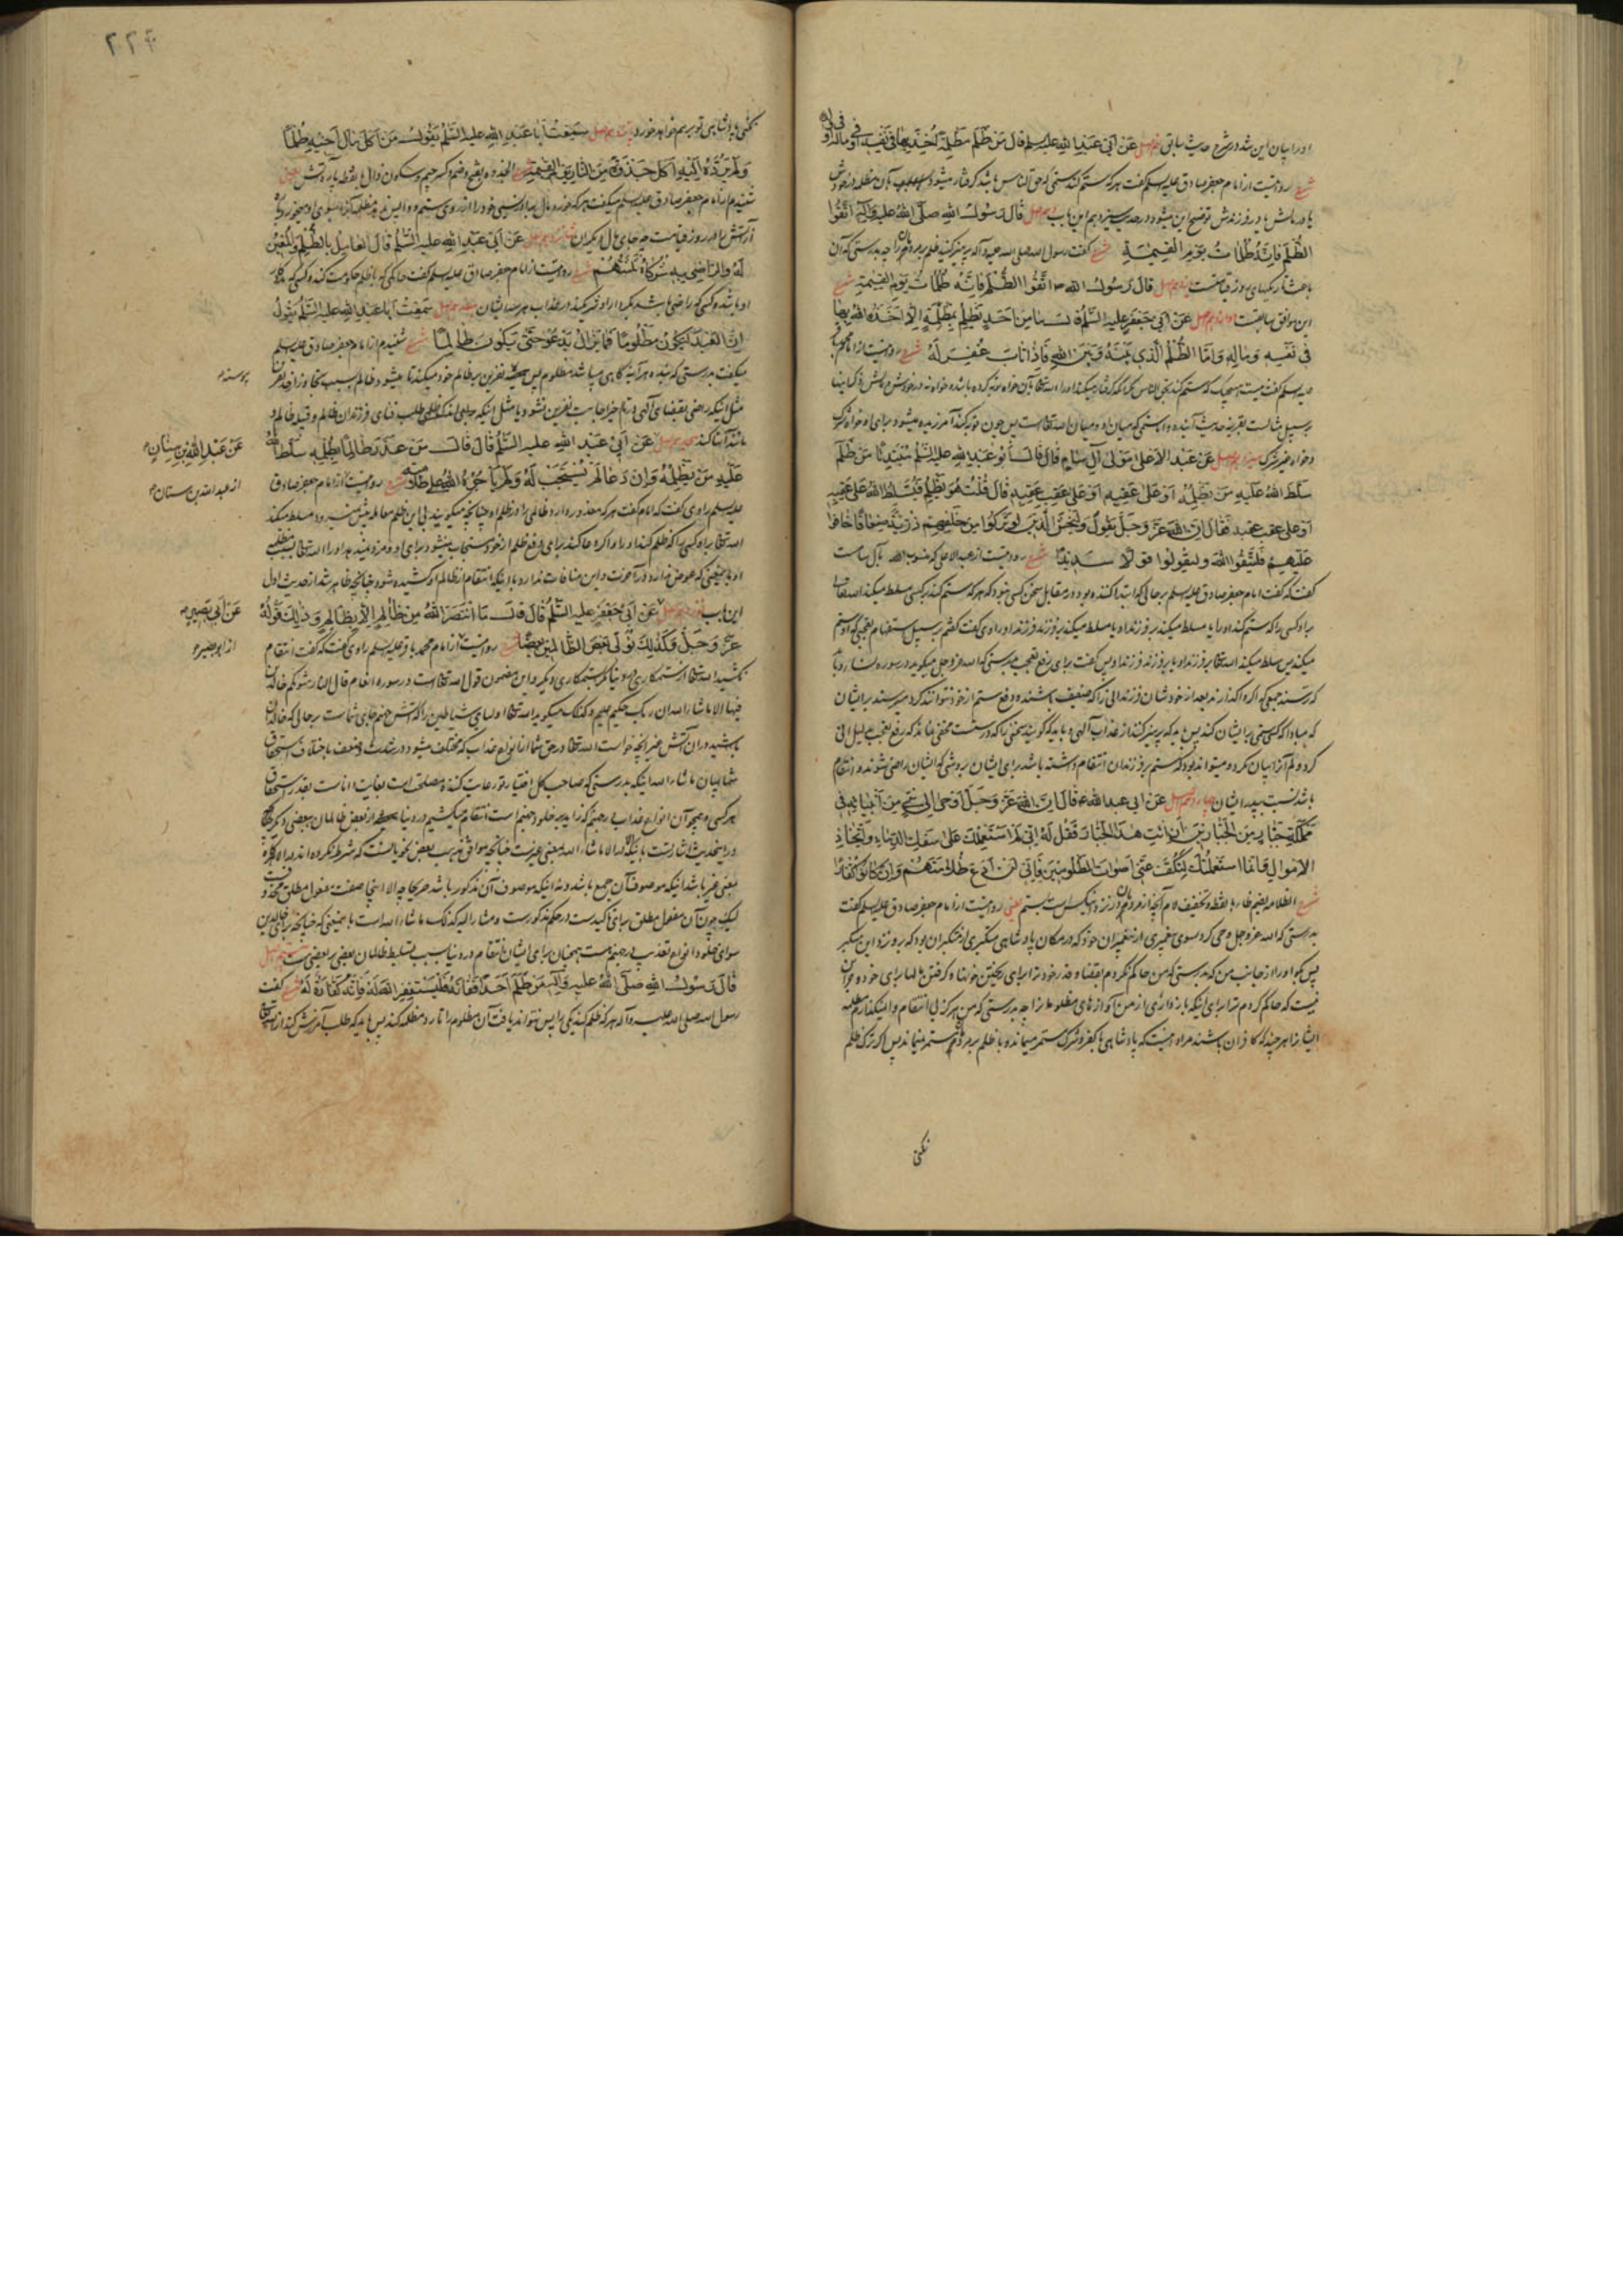 او را بیان این شد در شرح حدیث سابق نهم اصل عَنْ أَبِي عَبْدِ اللهِ علیه السلم قَالَ مَنْ ظَلَمَ مَظْلِمَةً أُخِذَ بِهَا فِي نَفْسِهِ أَوْ فِي مَالِهِ أَوْ فِي وُلْدِهِ
شرح روایتست از امام جعفر صادق علیه السلم گفت هر که ستم کند ستمی که حق الناس باشد گرفتار میشود بآن مظلمه در خودش
یا در مالش یا در فرزندش توضیح این میشود در حدیث سیزدهم این باب دهم اصل قَالَ رَسُولُ اللهِ صَلَّى اللهُ عَلَيْهِ وَآلِهِ اتَّقُوا
الظُّلْمَ فَإِنَّهُ ظُلُمَاتُ يَوْمِ الْقِيمَةِ شرح گفت رسول الله صلی الله علیه وآله پرهیز کنید ظلم بر مردمان را چه بدرستی که آن
باعث تاریکیهای روز قیامتست یازدهم اصل قَالَ رَسُولُ اللهِ ص اتَّقُوا الظُّلْمَ فَإِنَّهُ ظُلُمَاتُ يَوْمِ الْقِيمَةِ شرح
این موافق سابقست دوازدهم اصل عَنْ أَبِي جَعْفَرٍ عَلَيْهِ السَّلَمُ قَالَ مَا مِنْ أَحَدٍ يَظْلِمُ بِمَظْلِمَةٍ إِلَّا أَخَذَهُ اللهُ بِهَا
فِي نَفْسِهِ وَمَالِهِ وَأَمَّا الظُّلْمُ الَّذِي بَيْنَهُ وَبَيْنَ اللهِ فَإِذَا تَابَ غُفِرَ لَهُ شرح روایتست از امام محمد باقر
علیه السلم گفت نیست هیچیک که ستم کند بحق الناس مگر آنکه گرفتار میکند او را الله تعالی بآن خواه توبه کرده باشد و خواه نه در خودش و مالش
بر سبیل مثالست بقرینه حدیث آینده و اما ستمی که میان او و میان الله تعالی است پس چون توبه کند آمرزیده میشود برای او خواه شرک
و خواه غیر شرک سیزدهم اصل عَنْ عَبْدِ الْأَعْلَى مَوْلَى آلِ سَامٍ قَالَ قَالَ أَبُو عَبْدِ اللهِ علیه السلم مُبْتَدِئًا مَنْ ظَلَمَ
سَلَّطَ اللهُ عَلَيْهِ مَنْ يَظْلِمُهُ أَوْ عَلَى عَقِبِهِ أَوْ عَلَى عَقِبِ عَقِبِهِ قَالَ قُلْتُ هُوَ يَظْلِمُ فَيُسَلِّطُ اللهُ عَلَى عَقِبِهِ
أَوْ عَلَى عَقِبِ عَقِبِهِ فَقَالَ إِنَّ اللهَ عَزَّ وَجَلَّ يَقُولُ وَلْيَخْشَ الَّذِينَ لَوْ تَرَكُوا مِنْ خَلْفِهِمْ ذُرِّيَّةً ضِعَافًا خَافُوا
عَلَيْهِمْ فَلْيَتَّقُوا اللهَ وَلْيَقُولُوا قَوْلًا سَدِيدًا شرح روایتست از عبد الاعلی که منسوب بآل سامست
گفت که گفت امام جعفر صادق علیه السلم بر حالی که ابتدا کننده بود در مقابل سخن کسی نبود که هر که ستم کند بر کسی مسلط میکند الله تعالی
بر او کسی را که ستم کند او را یا مسلط میکند بر فرزند او یا مسلط میکند بر فرزند فرزند او راوی گفت گفتم بر سبیل استفهام تعجبی که او ستم
میکند پس مسلط میکند الله تعالی بر فرزند او یا بر فرزند فرزند او پس گفت برای رفع تعجب بدرستی که الله عز وجل میگوید در سوره نساء و باید
که ترسند جمعی که اگر واگذارند بعد از خودشان فرزندانی را که ضعیف باشند و دفع ستم از خود نتوانند کرد میترسند بر ایشان
که مبادا که کسی ستم بر ایشان کند پس باید که پرهیز کنند از عذاب الهی و باید که گویند سخنی را که درستست مخفی نماند که رفع تعجب بدلیل
کرد و لم آنرا بیان نکرد و میتواند بود که ستم بر فرزندان انتقام داشته باشد برای ایشان بروشی که ایشان راضی شوند و انتقام
باشد نسبت بپدر ایشان چهاردهم اصل عَنْ أَبِي عَبْدِ اللهِ ع قَالَ إِنَّ اللهَ عَزَّ وَجَلَّ أَوْحَى إِلَى نَبِيٍّ مِنْ أَنْبِيَائِهِ فِي
مَمْلَكَةِ جَبَّارٍ مِنَ الْجَبَّارِينَ أَنِ ائْتِ هَذَا الْجَبَّارَ فَقُلْ لَهُ إِنِّي لَمْ أَسْتَعْمِلْكَ عَلَى سَفْكِ الدِّمَاءِ وَاتِّخَاذِ
الْأَمْوَالِ وَإِنَّمَا اسْتَعْمَلْتُكَ لِتَكُفَّ عَنِّي أَصْوَاتَ الْمَظْلُومِينَ فَإِنِّي لَنْ أَدَعَ ظُلَامَتَهُمْ وَإِنْ كَانُوا كُفَّارًا
شرح الظلامه بضم ظاء با نقطه و تخفیف لام آنچه از مردمان نزد هر کس است بستم یعنی روایتست از امام جعفر صادق علیه السلم گفت
بدرستی که الله عز وجل وحی کرد سوی پیغمبری از پیغمبران خود که در مکان پادشاهی متکبری از متکبران بود که برو نزد این متکبر
پس بگو او را از جانب من که بدرستی که من حاکم نکردم بقضا و قدر خود ترا برای ریختن خونها و گرفتن مالها برای خود و جز این
نیست که حاکم کردم ترا برای اینکه باز داری از من آوازهای مظلومانرا چه بدرستی که من هرگز بی انتقام وا نمیگذارم مظلمه
ایشانرا هر چند که کافران باشند مراد اینست که پادشاهی با کفر و شرک مستمر میماند و با ظلم بر مردم مستمر نمیماند پس اگر ترک ظلم
نکنی
۲۲۴
نکنی پادشاهی تو برهم خواهد خورد پانزدهم اصل سَمِعْتُ أَبَا عَبْدِ اللهِ علیه السلم يَقُولُ مَنْ أَكَلَ مَالَ أَخِيهِ ظُلْمًا
وَلَمْ يَرُدَّهُ إِلَيْهِ أَكَلَ جَذْوَةً مِنَ النَّارِ يَوْمَ الْقِيمَةِ شرح الجذوه بفتح و ضم و کسر جیم و سکون ذال با نقطه پاره آتش یعنی
شنیدم از امام جعفر صادق علیه السلم میگفت هر که خورد مال برادر دینی خود را از روی ستم و واپس نداد آنرا سوی او میخورد پاره
آتش را در روز قیامت بجای مال دیگران شانزدهم اصل عَنْ أَبِي عَبْدِ اللهِ علیه السلم قَالَ الْعَامِلُ بِالظُّلْمِ وَالْمُعِينُ
لَهُ وَالرَّاضِي بِهِ شُرَكَاءُ ثَلَاثَتُهُمْ شرح روایتست از امام جعفر صادق علیه السلم گفت حاکمی که با ظلم حکومت کند و کسی که مددکار
او باشد و کسی که راضی باشد بکردار او شریکند در عذاب هر سه ایشان هفدهم اصل سَمِعْتُ أَبَا عَبْدِ اللهِ علیه السلم يَقُولُ
إِنَّ الْعَبْدَ لَيَكُونُ مَظْلُومًا فَمَا يَزَالُ يَدْعُو حَتَّى يَكُونَ ظَالِمًا شرح شنیدم از امام جعفر صادق علیه السلم
میگفت بدرستی که بنده هر آینه گاهی میباشد مظلوم پس همیشه نفرین بر ظالم خود میکند تا میشود ظالم بسبب تجاوز از حد نفرین
پیوسته
مثل اینکه راضی بقضای الهی در تاخیر اجابت نفرین نشود و یا مثل اینکه طلب فنای فرزندان ظالم و قبیله ظالم و
مانند آنها کند هجدهم اصل عَنْ أَبِي عَبْدِ اللهِ علیه السلم قَالَ قَالَ مَنْ عَذَرَ ظَالِمًا بِظُلْمِهِ سَلَّطَ اللهُ
عَنْ عَبْدِ اللهِ بْنِ سِنَانٍ
عَلَيْهِ مَنْ يَظْلِمُهُ وَإِنْ دَعَا لَمْ يُسْتَجَبْ لَهُ وَلَمْ يَأْجُرْهُ اللهُ عَلَى ظُلَامَتِهِ شرح روایتست از امام جعفر صادق
از عبد الله بن سنان
علیه السلم راوی گفت که امام گفت هر که معذور دارد ظالمی را در ظلم او چنانچه میگویند بی این ظلم معامله پیش نمیرود مسلط میکند
الله تعالی بر او کسی را که ظلم کند او را و اگر دعا کند برای دفع ظلم از خود مستجاب نمیشود برای او و مزد نمیدهد او را الله تعالی بر مظلمه
او باین معنی که عوض ندارد در آخرت و این منافات ندارد با اینکه انتقام از ظالم او کشیده شود چنانچه ظاهر شد از حدیث اول
این باب نوزدهم اصل عَنْ أَبِي جَعْفَرٍ علیه السلم قَالَ قَالَ مَا انْتَصَرَ اللهُ مِنْ ظَالِمٍ إِلَّا بِظَالِمٍ وَذَلِكَ قَوْلُهُ
عَنْ أَبِي بَصِيرٍ
عَزَّ وَجَلَّ وَكَذَلِكَ نُوَلِّي بَعْضَ الظَّالِمِينَ بَعْضًا شرح روایتست از امام محمد باقر علیه السلم راوی گفت که گفت انتقام
از ابو بصیر
نکشید الله تعالی از ستمکاری در دنیا مگر بستمکاری دیگر و این مضمون قول الله تعالی است در سوره انعام قال النار مثویکم خالدین
فیها الا ما شاء الله ان ربک حکیم علیم و کذلک میگوید الله تعالی اولیای شیاطین را که آتش جهنم جای شماست بر حالی که خالدان
باشید در آن آتش غیر آنچه خواست الله تعالی در حق شما از انواع عذاب که مختلف میشود در شدت و ضعف باختلاف استحقاق
شما بیان ما شاء الله اینکه بدرستی که صاحب کل اختیار تو رعایت کننده مصلحت است بغایت داناست بقدر استحقاق
هر کسی و همچو آن انواع عذاب در جهنم که زاید بر خلود جهنم است انتقام میکشیم در دنیا از بعض ظالمان ببعضی دیگر
در این حدیث اشارتست باینکه الا ما شاء الله بمعنی غیرست چنانچه موافق مذهب بعض نحویانست که شرط نکرده اند در الا که
بمعنی غیر باشد اینکه موصوف آن جمع باشد و نه اینکه موصوف آن مذکور باشد صریحا چه الا اینجا صفت مفعول مطلق محذوفست
لیک چون آن مفعول مطلق برای تاکیدست در حکم مذکورست و مشار الیه کذلک ما شاء الله است باین معنی که چنانچه برای خالدین
سوای خلود انواع تعذیب در جهنم هست همچنان برای ایشان انتقام در دنیا بسبب تسلیط ظالمان بعضی بر بعضی هست بیستم اصل
قَالَ رَسُولُ اللهِ صَلَّى اللهُ عَلَيْهِ وَآلِهِ مَنْ ظَلَمَ أَحَدًا فَفَاتَهُ فَلْيَسْتَغْفِرِ اللهَ لَهُ فَإِنَّهُ كَفَّارَةٌ لَهُ شرح گفت
رسول الله صلی الله علیه وآله هر که ظلم کند یکی را پس نتواند یافت آن مظلوم را تا رد مظلمه کند پس باید که طلب آمرزش کند از الله تعالی